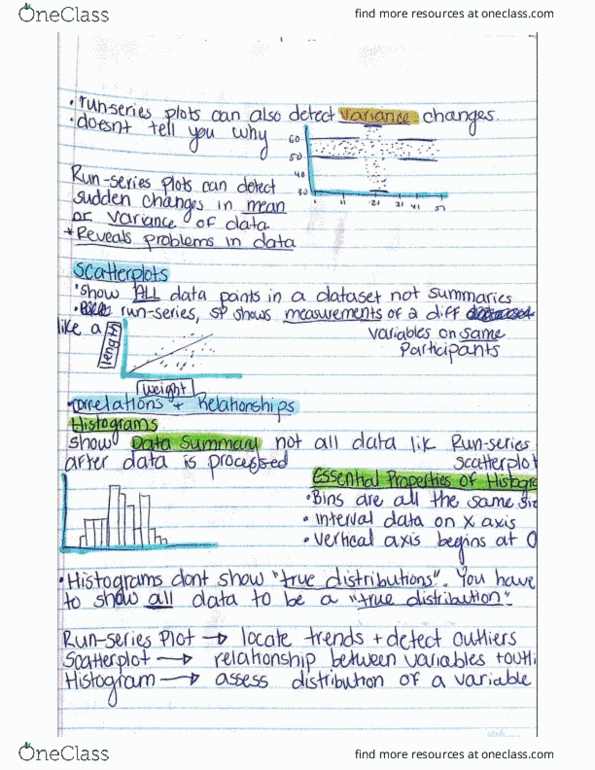 OneClass
find more resources at oneclass.com
• run-series plots can also detect variance changes.
• doesnt tell you why
60
50
40
30
1 11 21 31 41 51
Run-series plots can detect
sudden changes in mean
or variance of data
* Reveals problems in data
Scatterplots
• show ALL data points in a dataset not summaries
• run-series, SP shows measurements of 2 diff
like a
variables on same
participants
length
weight
• correlations + Relationships
Histograms
show Data Summary not all data lik Run-series
after data is processed
scatterplot
Essential Properties of Histogra
• Bins are all the same siz
• Interval data on x axis
• Vertical axis begins at 0
• Histograms dont show "true distributions". You have
to show all data to be a "true distribution".
Run-series Plot → locate trends + detect outliers
Scatterplot → relationship between variables + outli
Histogram → assess distribution of a variable
OneClass
find more resources at oneclass.com